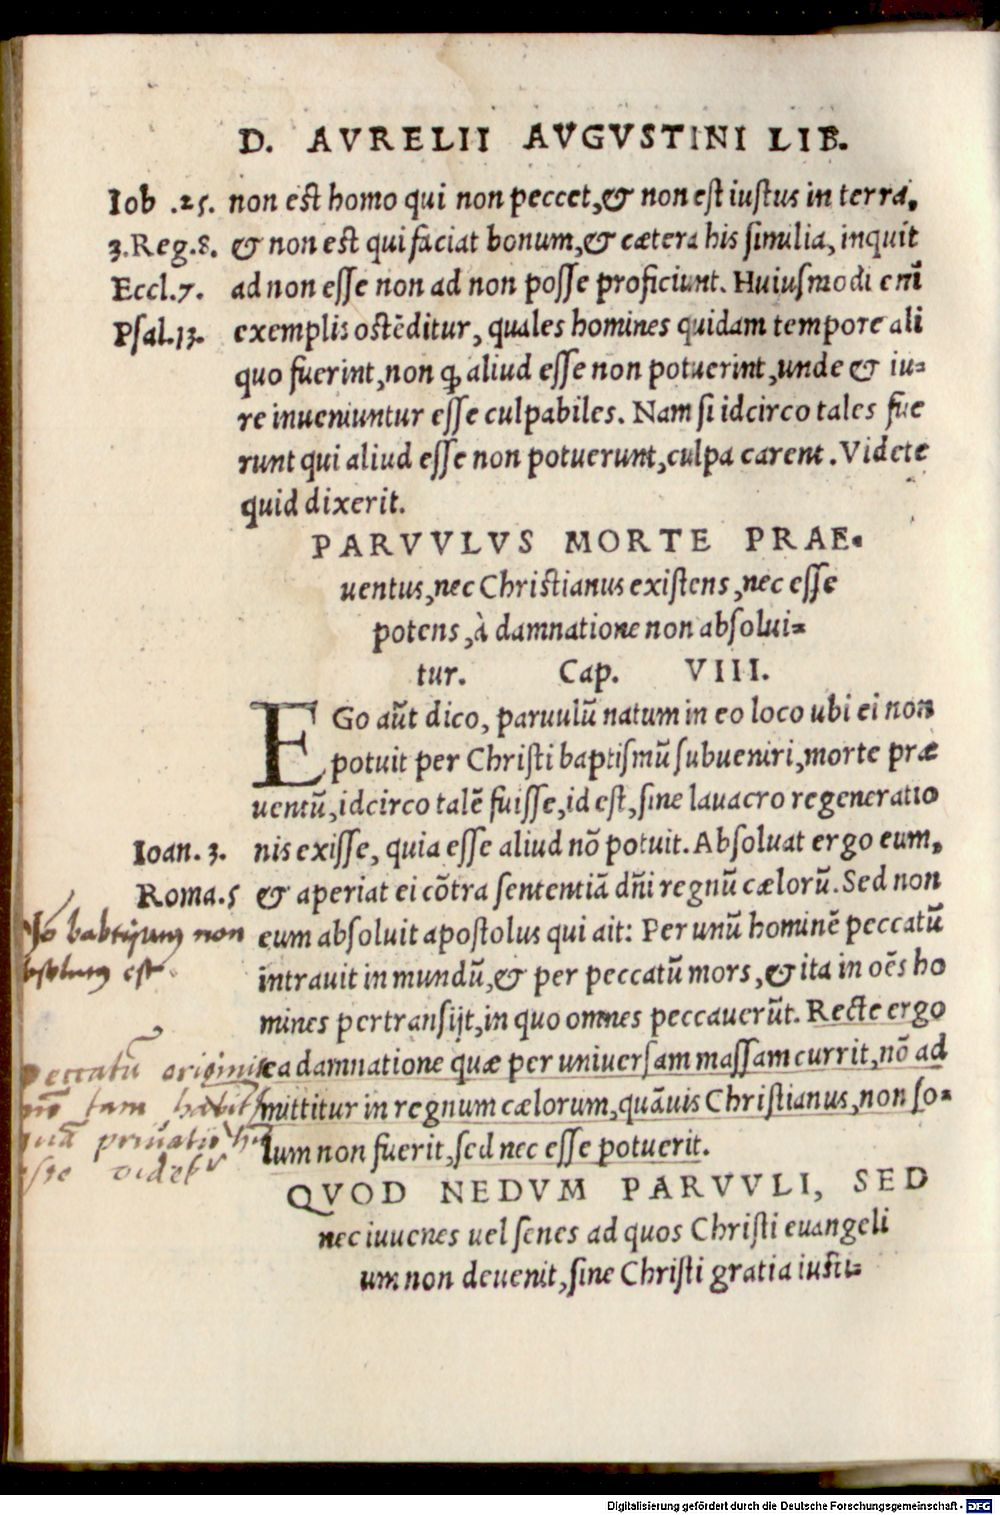 D. AVRELII AVGVSTINI LIB.
Iob .25. non est homo qui non peccet, & non est iustus in terra,
3.Reg.8. & non est qui faciat bonum, & cætera his similia, inquit
Eccl.7. ad non esse non ad non posse proficiunt. Huiusmodi em̃
Psal.13. exemplis ostẽditur, quales homines quidam tempore ali
quo fuerint, non ꝙ aliud esse non potuerint, unde & iu=
re inueniuntur esse culpabiles. Nam si idcirco tales fue
runt qui aliud esse non potuerunt, culpa carent. Videte
quid dixerit.
PARVVLVS MORTE PRAE=
uentus, nec Christianus existens, nec esse
potens, à damnatione non absolui=
tur. Cap. VIII.
EGo aũt dico, paruulũ natum in eo loco ubi ei non
potuit per Christi baptismũ subueniri, morte præ
uentũ, idcirco talẽ fuisse, id est, sine lauacro regeneratio
Ioan. 3. nis exisse, quia esse aliud nõ potuit. Absoluat ergo eum,
Roma.5 & aperiat ei cõtra sententiã dñi regnũ cælorũ. Sed non
babtisum non
est
eum absoluit apostolus qui ait: Per unũ hominẽ peccatũ
intrauit in mundũ, & per peccatũ mors, & ita in oẽs ho
mines pertransijt, in quo omnes peccauerũt. Recte ergo
peccatũ
nõ tam
quã priuatio
esse videtur
ea damnatione quæ per uniuersam massam currit, nõ ad
mittitur in regnum cælorum, quãuis Christianus, non so=
lum non fuerit, sed nec esse potuerit.
QVOD NEDVM PARVVLI, SED
nec iuuenes uel senes ad quos Christi euangeli
um non deuenit, sine Christi gratia iusti=
Digitalisierung gefördert durch die Deutsche Forschungsgemeinschaft - DFG